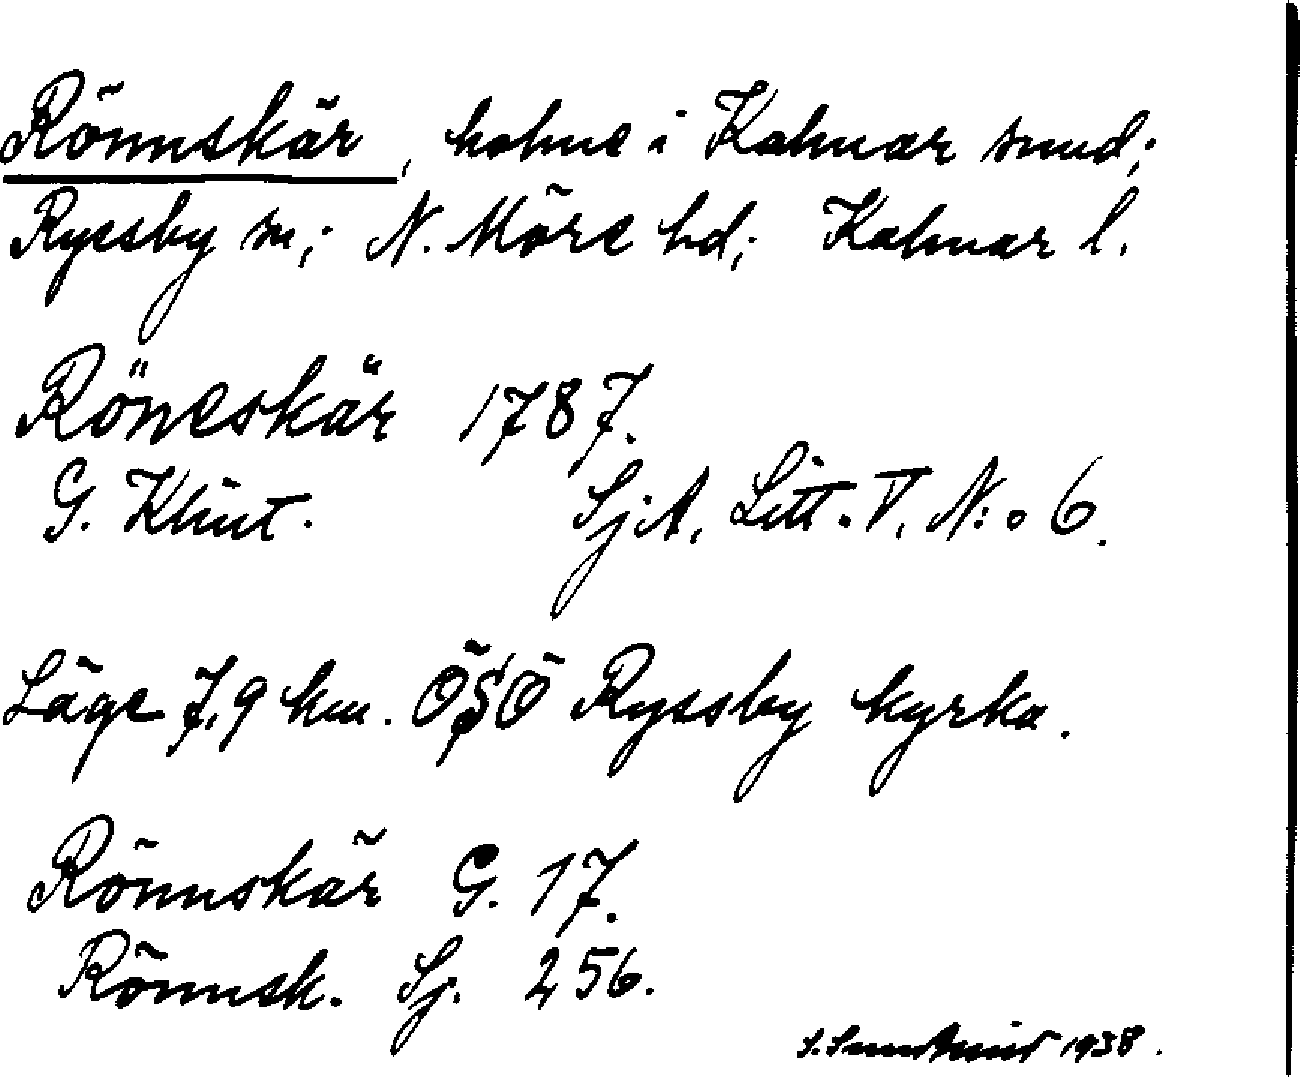 Rönnskär, holme i Kalmar sund;
Ryssby sn; N. Möre hd; Kalmar l.
Röneskär 1787.
G. Klint. SjA, Litt. V, N:o 6.
Läge 7,9 km. ÖSÖ Ryssby kyrka.
Rönnskär G. 17.
Rönnsk. Sj. 256.
1938.